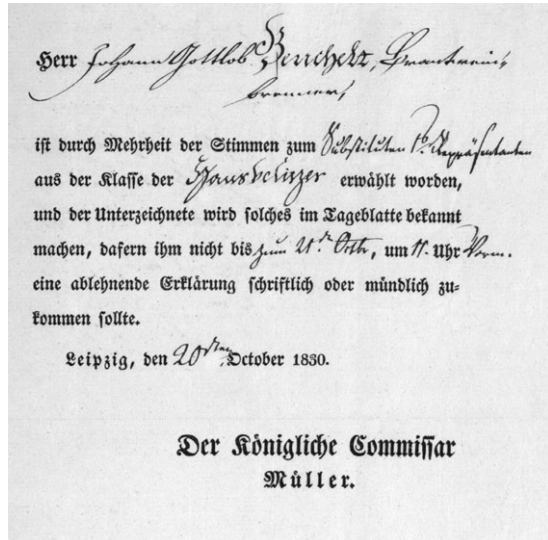 Herr Johann Gottlob Branntwein,
brenner,
ist durch Mehrheit der Stimmen zum Substituten Repräsentanten
aus der Klasse der Hausbesitzer erwählt worden,
und der Unterzeichnete wird solches im Tageblatte bekannt
machen, dafern ihm nicht bis zum Octbr, um 11. Uhr Vorm.
eine ablehnende Erklärung schriftlich oder mündlich zu=
kommen sollte.
Leipzig, den 20 October 1830.
Der Königliche Commissar
Müller.